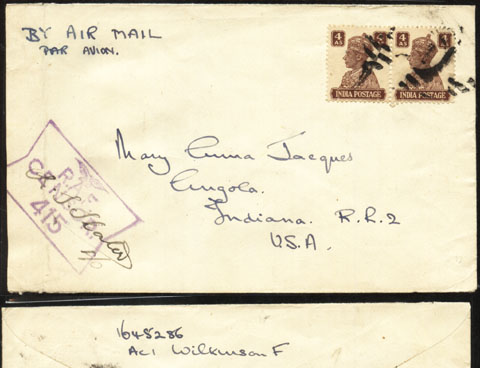 BY AIR MAIL
PAR AVION.
4 AS
INDIA POSTAGE
4 AS
INDIA POSTAGE
R.A.F.
CENSOR
415
Mary Anna Jacques
Angola.
Indiana. R.R.2
U.S.A.
1648286
AC1 Wilkinson F